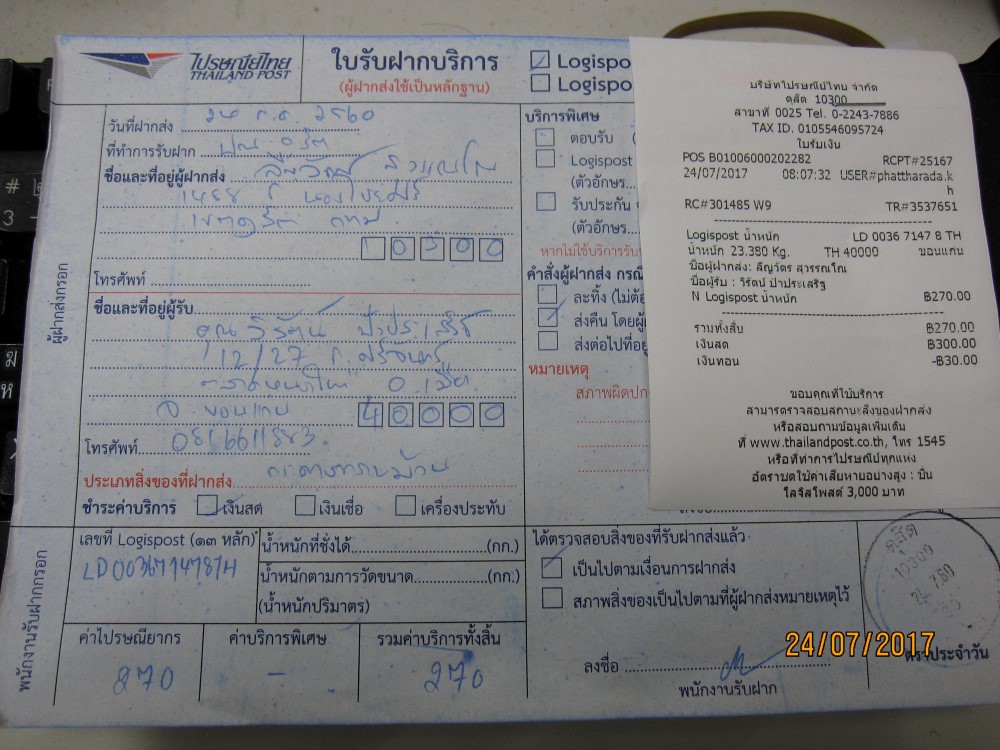 ไปรษณีย์ไทย
THAILAND POST
ใบรับฝากบริการ
(ผู้ฝากส่งใช้เป็นหลักฐาน)
Logispo
Logispo
วันที่ฝากส่ง 24 ก.ค. 2560
ที่ทำการรับฝาก ปณ. ดุสิต
ชื่อและที่อยู่ผู้ฝากส่ง
10300
โทรศัพท์
ผู้ฝากส่งกรอก
ชื่อและที่อยู่ผู้รับ
คุณ วิรัตน์ ป้าประเสริฐ
112/27 ถ. ศรีจันทร์
อ. เมือง
จ. ขอนแก่น 40000
โทรศัพท์ 0816611883
ประเภทสิ่งของที่ฝากส่ง
ชำระค่าบริการ เงินสด เงินเชื่อ เครื่องประทับ
บริการพิเศษ
ตอบรับ
Logispost
(ตัวอักษร...
รับประกัน
(ตัวอักษร...
หากไม่ใช้บริการรับ
คำสั่งผู้ฝากส่ง กรณี
ละทิ้ง (ไม่ต้อ
ส่งคืน โดยผู้
ส่งต่อไปที่อยู่
หมายเหตุ
สภาพผิดปก
พนักงานรับฝากกรอก
เลขที่ Logispost (๑๓ หลัก)
LD003671478TH
น้ำหนักที่ชั่งได้ (กก.)
น้ำหนักตามการวัดขนาด (กก.)
(น้ำหนักปริมาตร)
ค่าไปรษณียากร ค่าบริการพิเศษ รวมค่าบริการทั้งสิ้น
270 - 270
ได้ตรวจสอบสิ่งของที่รับฝากส่งแล้ว
เป็นไปตามเงื่อนการฝากส่ง
สภาพสิ่งของเป็นไปตามที่ผู้ฝากส่งหมายเหตุไว้
ลงชื่อ
พนักงานรับฝาก
ดุสิต
10300
24.7.60
ตราประจำวัน
24/07/2017
บริษัทไปรษณีย์ไทย จำกัด
ดุสิต 10300
สาขาที่ 0025 Tel. 0-2243-7886
TAX ID. 0105546095724
ใบรับเงิน
POS B01006000202282 RCPT#25167
24/07/2017 08:07:32 USER#phattharada.k
h
RC#301485 W9 TR#3537651
Logispost น้ำหนัก LD 0036 7147 8 TH
น้ำหนัก 23.380 Kg. TH 40000 ขอนแก่น
ชื่อผู้ฝากส่ง: ลัญวัตร สุวรรณโณ
ชื่อผู้รับ : วิรัตน์ ป่าประเสริฐ
N Logispost น้ำหนัก ฿270.00
รวมทั้งสิ้น ฿270.00
เงินสด ฿300.00
เงินทอน -฿30.00
ขอบคุณที่ใช้บริการ
สามารถตรวจสอบสถานะสิ่งของฝากส่ง
หรือสอบถามข้อมูลเพิ่มเติม
ที่ www.thailandpost.co.th, โทร 1545
หรือที่ทำการไปรษณีย์ทุกแห่ง
อัตราชดใช้ค่าเสียหายอย่างสูง : ชิ้น
โลจิสโพสต์ 3,000 บาท